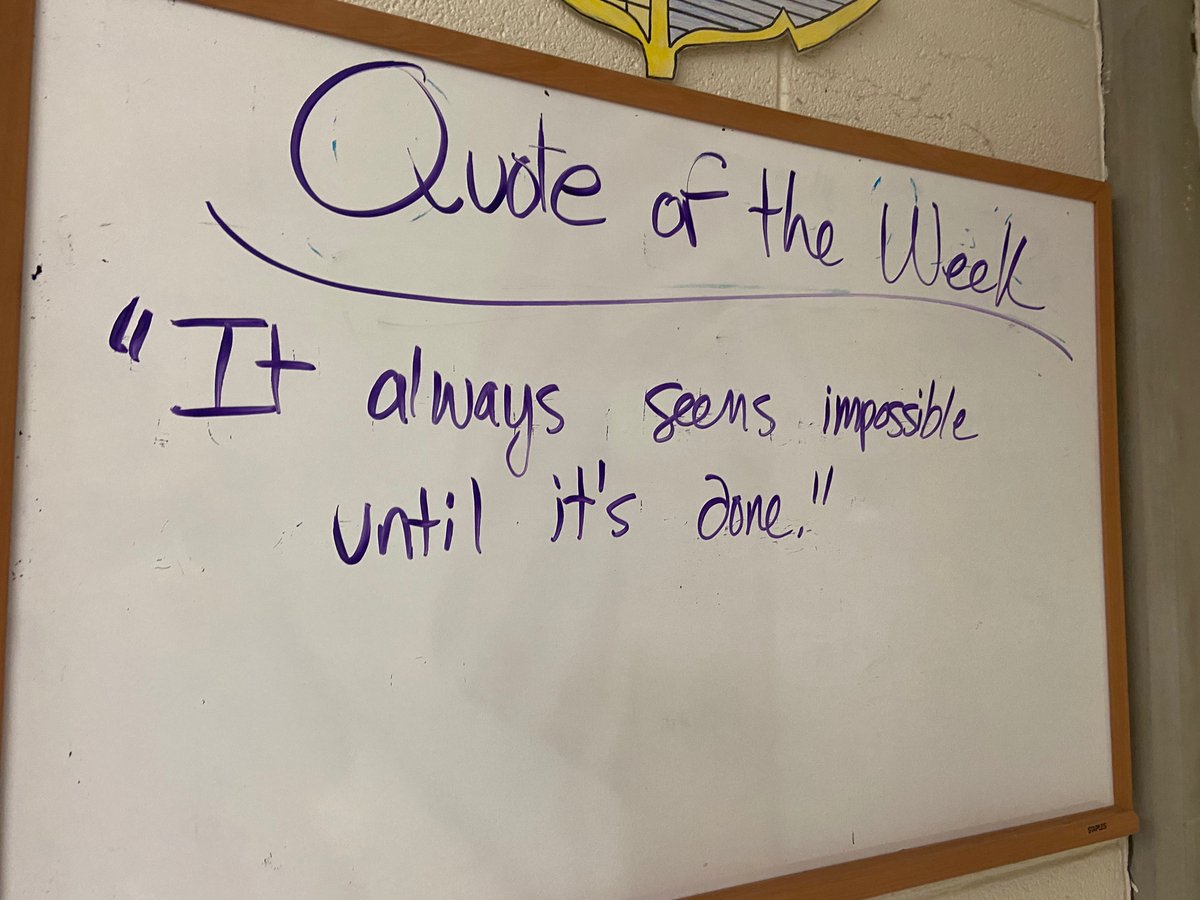 Quote of the Week
"It always seems impossible
until it's done."
STAPLES